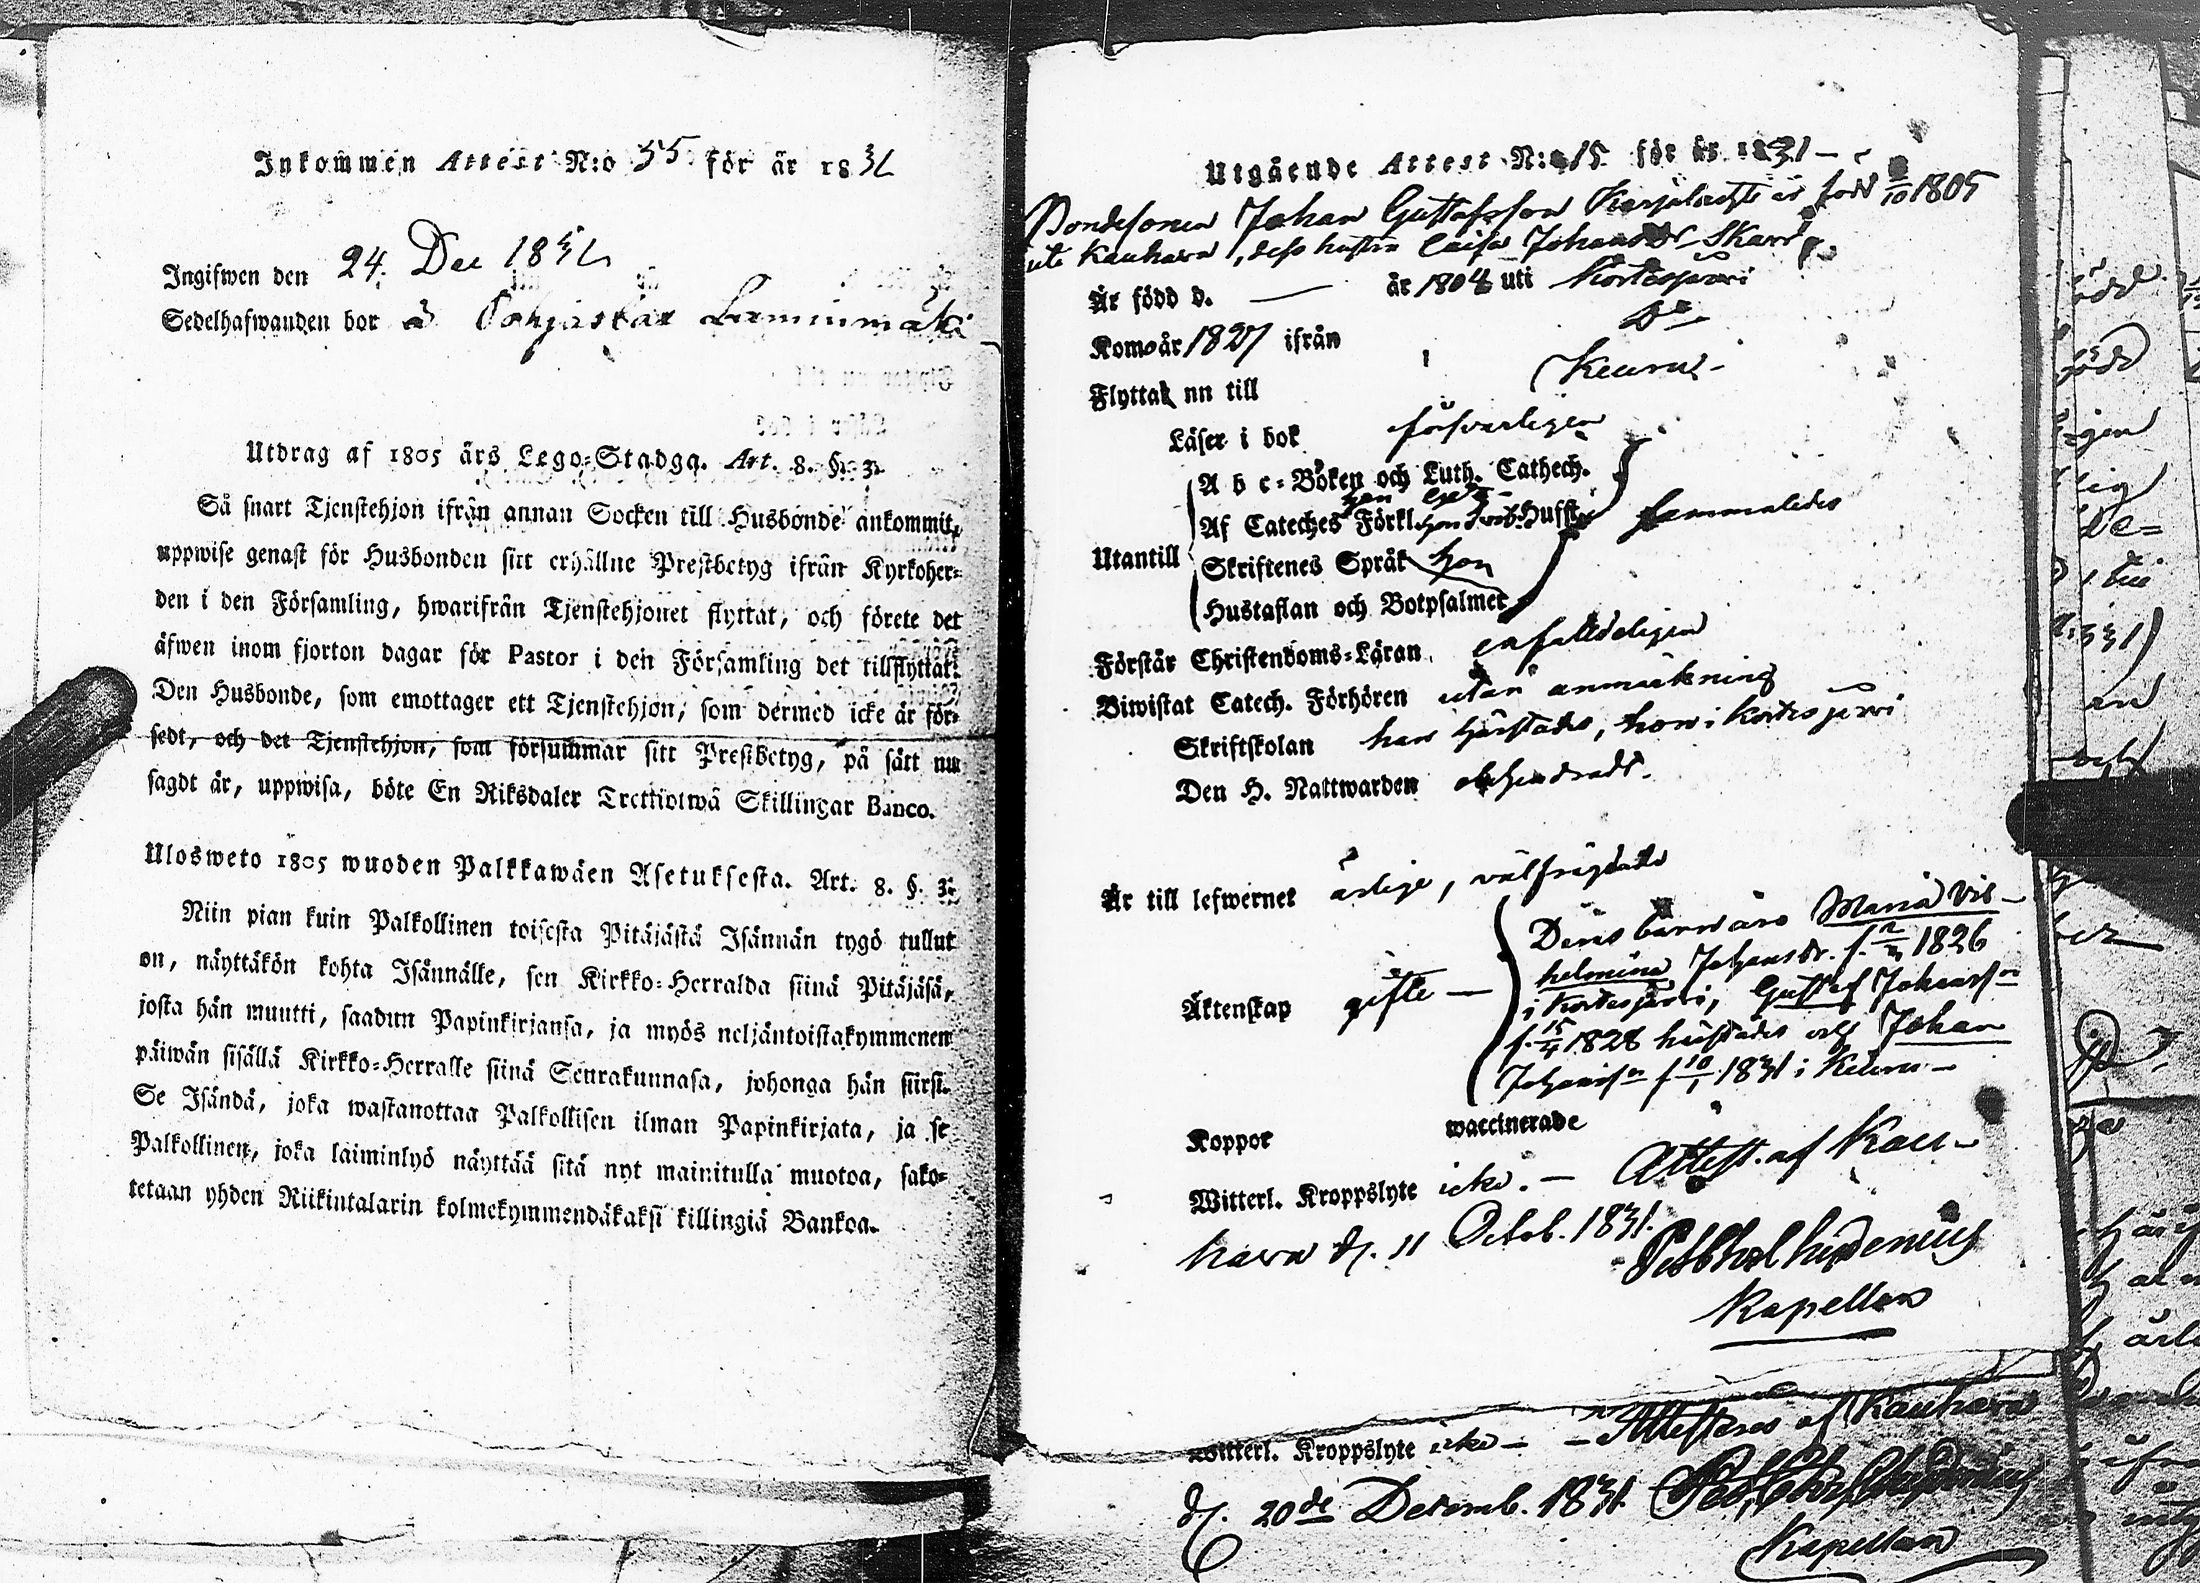 Inkommen Attest N:o 55 för år 1831
Ingifwen den 24. Dec 1831
Sedelhafwanden bor å Pohjaslax Lamminmäki
Utdrag af 1805 års Lego-Stadga. Art. 8. §. 3.
Så snart Tjenstehjon ifrån annan Socken till Husbonde ankommit,
uppwise genast för Husbonden sitt erhållne Prestbetyg ifrån Kyrkoher-
den i den Församling, hwarifrån Tjenstehjonet flyttat, och förete det
äfwen inom fjorton dagar för Pastor i den Församling det tillflyttat.
Den Husbonde, som emottager ett Tjenstehjon, som dermed icke är för-
sedt, och det Tjenstehjon, som försummar sitt Prestbetyg, på sätt nu
sagdt är, uppwisa, böte En Riksdaler Trettiotwå Skillingar Banco.
Ulosweto 1805 wuoden Palkkawäen Asetuksesta. Art. 8. §. 3.
Niin pian kuin Palkollinen toisesta Pitäjästä Isännän tygö tullut
on, näyttäkön kohta Isännälle, sen Kirkko-Herralda siinä Pitäjäsä,
josta hän muutti, saadun Papinkirjansa, ja myös neljäntoistakymmenen
päiwän sisällä Kirkko-Herralle siinä Seurakunnasa, johonga hän siirsi.
Se Isändä, joka wastanottaa Palkollisen ilman Papinkirjata, ja se
Palkollinen, joka laiminlyö näyttää sitä nyt mainitulla muotoa, sako-
tetaan yhden Riikintalarin kolmekymmendäkaksi killingiä Bankoa.
Utgående Attest N:o 15 för år 1831 –
Bondesonen Johan Gustafsson är född /10 1805
uti Kauhava, dess hustru Caisa Johansdr
Är född d. — år 1804 uti Kortesjärvi
Kom år 1827 ifrån Do
Flyttar nu till Keuru –
Läser i bok försvarligen
A b c-Boken och Luth. Cathech.
Af Cateches Förkl. Hufst. sammaledes
Utantill Skriftenes Språk hon
Hustaflan och Botpsalmer
Förstår Christendoms-Läran enfaldeligen
Biwistat Catech. Förhören utan anmärkning
Skriftskolan han härstädes, hon i Kortesjärvi
Den H. Nattwarden obehindradt.
Är till lefwernet ärlige, välfrägdade
Äktenskap gifte —
Deras barn äro Maria Vil-
helmina Johansdr. f. 1826
i Kortesjärvi, Gustaf Johansson
f. 15/4 1828 härstädes och Johan
Johansson f. 10/1 1831 i Keuru —
Koppor waccinerade
Witterl. Kroppslyte icke. — Attest. af Kau-
hava d. 11 Octob. 1831.
Kapellan
Witterl. Kroppslyte icke — – Attesteras af Kauhava
d. 20de Decemb. 1831.
Kapellan